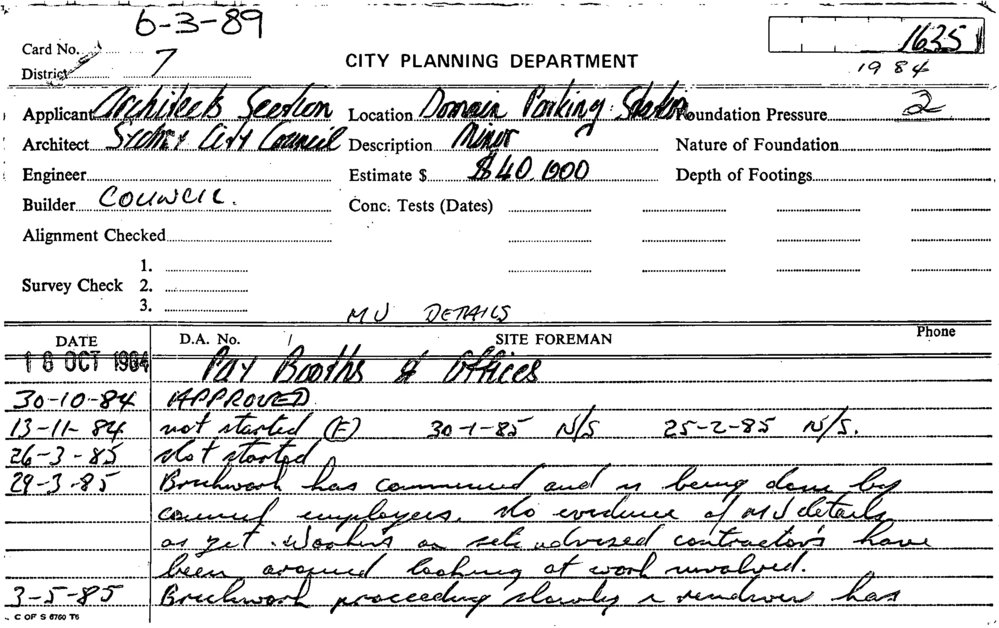 6-3-89
1635
Card No.
District 7
CITY PLANNING DEPARTMENT
1984
Applicant Architects Section Location Domain Parking Station Foundation Pressure 2
Architect Sydney City Council Description Minor Nature of Foundation
Engineer Estimate $ $40,000 Depth of Footings
Builder COUNCIL. Conc. Tests (Dates)
Alignment Checked
Survey Check 1.
2.
3.
MU DETAILS
DATE D.A. No. / SITE FOREMAN Phone
18 OCT 1984 Pay Booths & Offices
30-10-84 APPROVED
13-11-84 not started (E) 30-1-85 N/S 25-2-85 N/S.
26-3-85 Not started
29-3-85 Brickwork has commenced and is being done by
council employees. No evidence of MU details
as yet. on site advised contractors have
been around looking at work involved.
3-5-85 Brickwork proceeding slowly has
C OF S 6760 T6